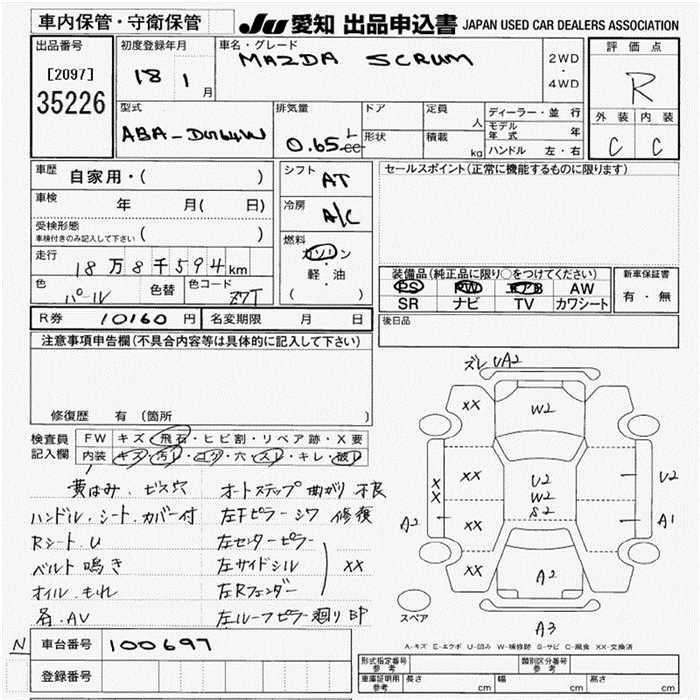 車内保管・守衛保管
JU 愛知 出品申込書 JAPAN USED CAR DEALERS ASSOCIATION
出品番号
[2097]
35226
初度登録年月
18 1 月
車名・グレード
MAZDA SCRUM
2WD
・
4WD
評価点
R
外装 内装
C C
型式
ABA-DG64W
排気量
0.65 L cc
ドア
形状
定員
人
積載
kg
ディーラー・並行
モデル年式 年
ハンドル 左・右
車歴 自家用・( )
車検 年 月( 日)
受検形態
車検付きのみ記入して下さい ( )
走行 18万8千594km
色 パール 色替 色コード Z7T
シフト AT
冷房 A/C
燃料
ガソリン
・
軽・油
( )
セールスポイント(正常に機能するものに限ります)
装備品(純正品に限り○をつけてください)
PS PW エアB AW
SR ナビ TV カワシート
新車保証書
有・無
後日品
R券 10160 円 名変期限 月 日
注意事項申告欄(不具合内容等は具体的に記入して下さい)
修復歴 有 (箇所 )
検査員記入欄
FW キズ・飛石・ヒビ割・リペア跡・X要
内装 キズ・汚レ・コゲ・穴・スレ・キレ・破レ
黄ばみ.ビス穴 オートステップ曲がり不良
ハンドル.シート.カバー付 左Fピラーシワ 修復
Rシート.U 左センターピラー
ベルト鳴き 左サイドシル XX
オイル.もれ 左Rフェンダー
名.AV 左ルーフピラー廻りBP
ズレ UA2
XX W2
XX U2 U2
W2
S2
XX
A2 XX A1
XX A2
スペア
A3
A-キズ E-エクボ U-凹み W-補修跡 S-サビ C-腐食 XX-交換済
N 車台番号 100697
登録番号
型式指定番号 参考
類別区分番号 参考
車庫証明用 参考 長さ cm 幅 cm 高さ cm